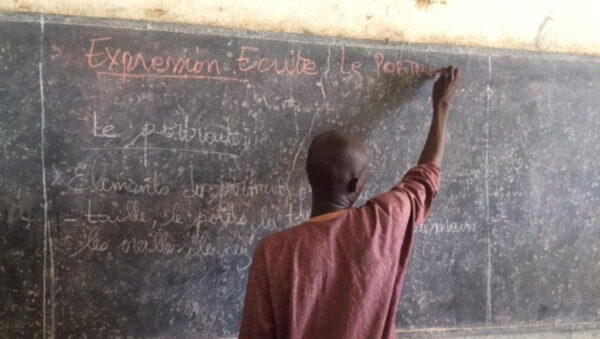 Expression Ecrite Le PORTR
Le portrait
Elements du portrait
- taille le poids, la main
- les oreilles, le nez